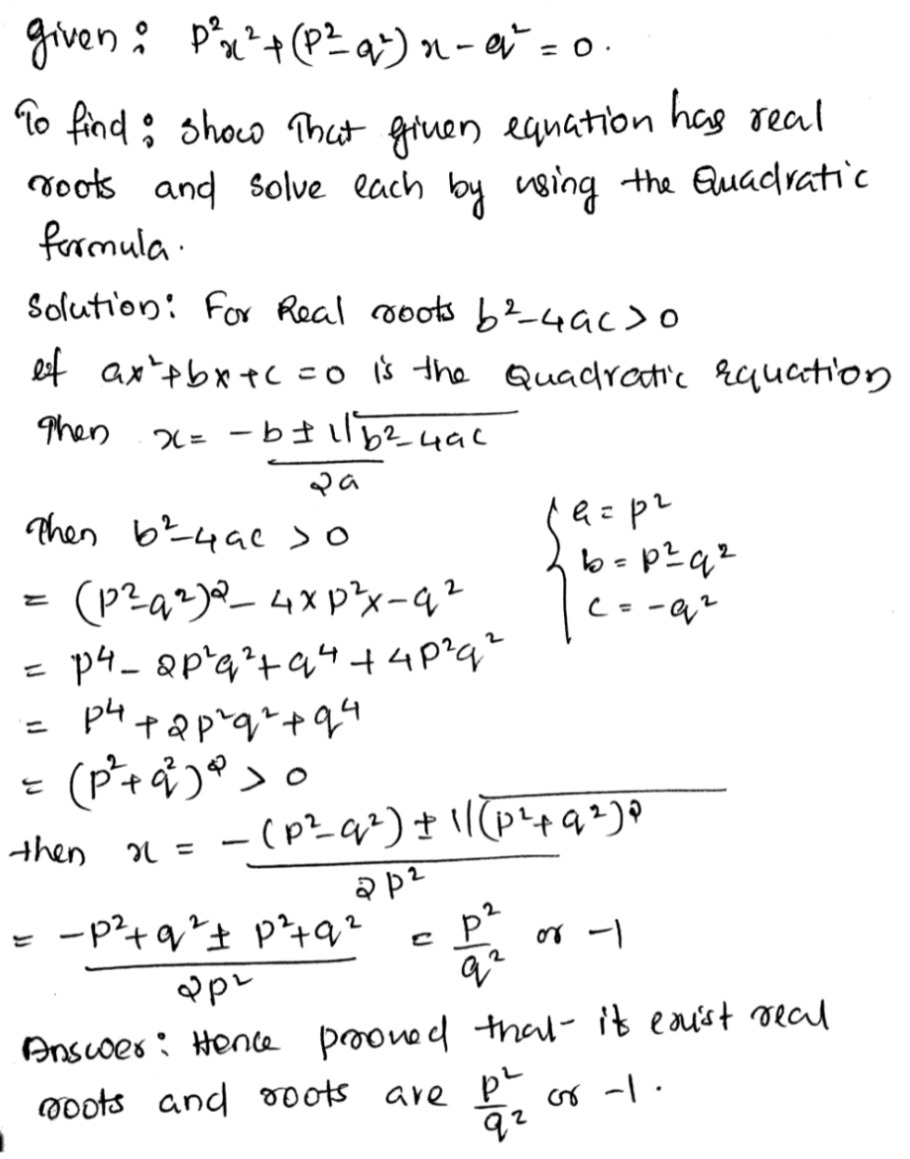 given : p²x²+(p²-q²)x-q²=0.
To find : show That given equation has real
roots and solve each by using the Quadratic
formula.
Solution: For Real roots b²-4ac>0
if ax²+bx+c=0 is the Quadratic Equation
Then x = -b±√b²-4ac / 2a
Then b²-4ac >0
{ a = p²
b = p²-q²
c = -q²
= (p²-q²)²-4×p²×-q²
= p4-2p²q²+q4+4p²q²
= p4+2p²q²+q4
= (p²+q²)² >0
then x = -(p²-q²)±√(p²+q²)² / 2p²
= -p²+q²± p²+q² / 2p² = p²/q² or -1
Answer: Hence prooved that it exist real
roots and roots are p²/q² or -1.